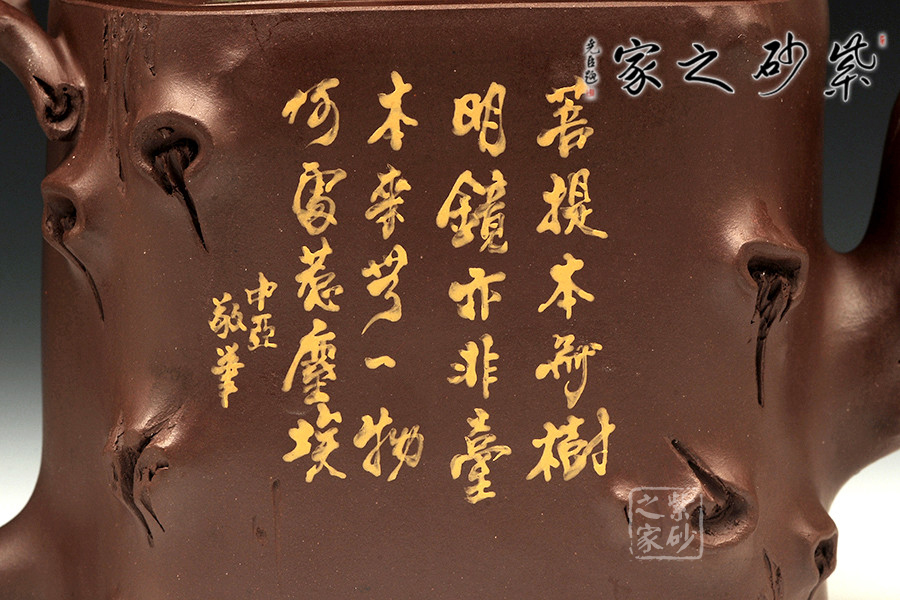 紫砂之家
菩提本無樹
明鏡亦非臺
本來無一物
何處惹塵埃
中亞
敬筆
紫砂
之家